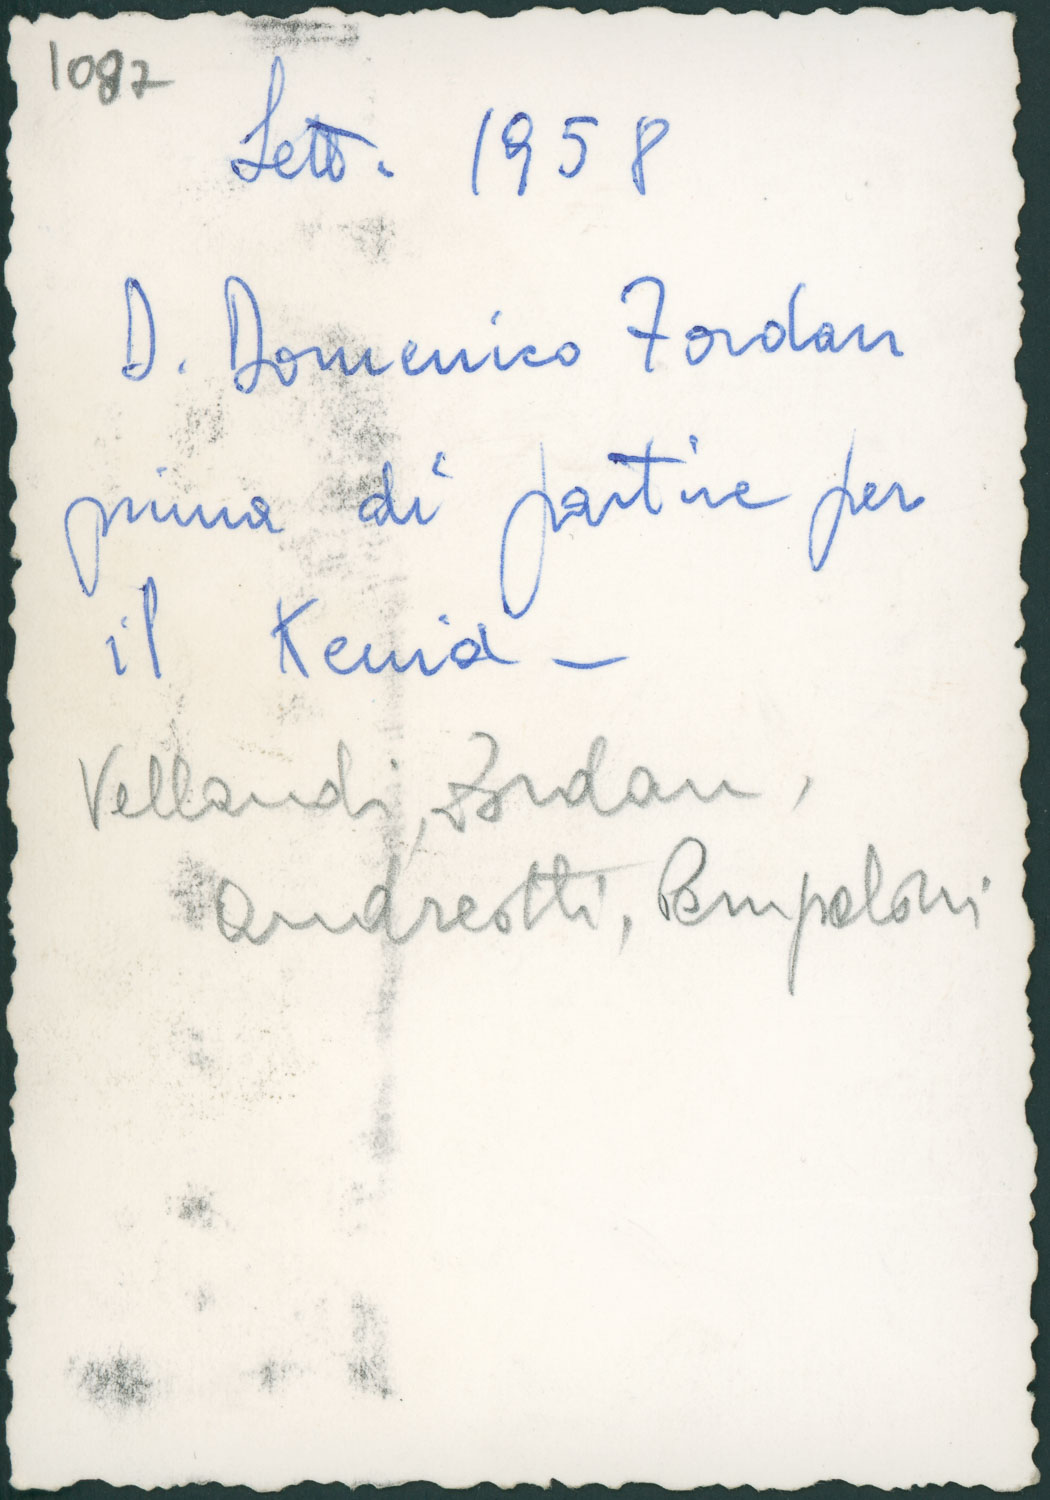 1087
Sett. 1958
D. Domenico Zordan
prima di partire per
il Kenia –
Vellandi, Zordan,
Andreotti, Pampaloni